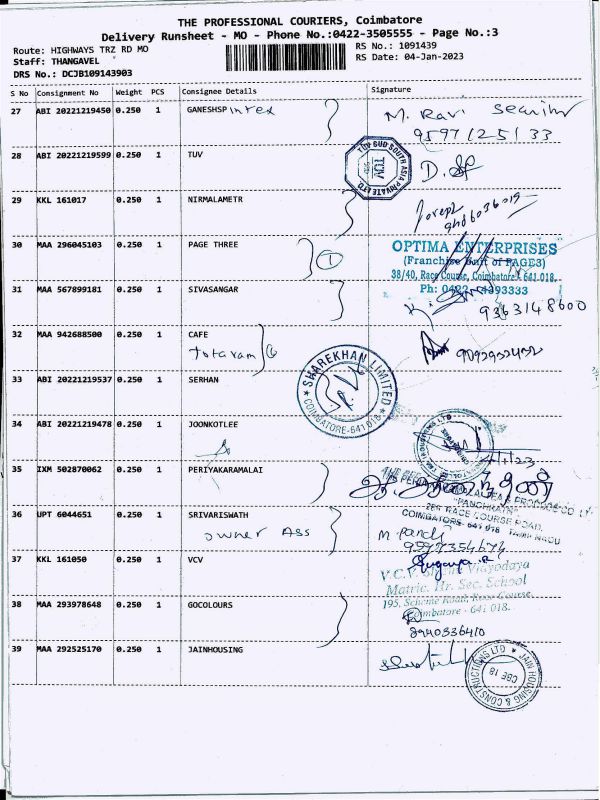 THE PROFESSIONAL COURIERS, Coimbatore
Delivery Runsheet - MO - Phone No.:0422-3505555 - Page No.:3
Route: HIGHWAYS TRZ RD MO
RS No.: 1091439
Staff: THANGAVEL
RS Date: 04-Jan-2023
DRS No.: DCJB109143903
S No Consignment No Weight PCS Consignee Details Signature
27 ABI 20221219450 0.250 1 GANESHSP intex M. Ravi
9597125133
28 ABI 20221219599 0.250 1 TUV
TUV SUD SOUTH ASIA PRIVATE LTD.
TUV
29 KKL 161017 0.250 1 NIRMALAMETR
30 MAA 296045103 0.250 1 PAGE THREE 1
OPTIMA ENTERPRISES
(Franchise Unit of PAGE3)
38/40, Race Course, Coimbatore - 641 018.
Ph: 0422 4393333
31 MAA 567899181 0.250 1 SIVASANGAR
9363148600
32 MAA 942688500 0.250 1 CAFE
totaram
33 ABI 20221219537 0.250 1 SERHAN
SHAREKHAN LIMITED
COIMBATORE-641 018
34 ABI 20221219478 0.250 1 JOONKOTLEE
35 IXM 502870062 0.250 1 PERIYAKARAMALAI
"PANCHRATN"
286 RACE COURSE ROAD,
COIMBATORE- 641 018 TAMIL NADU
36 UPT 6044651 0.250 1 SRIVARISWATH
owner Ass
M Pandi
9597354674
37 KKL 161050 0.250 1 VCV
Suganya.R
V.C.V. Shishu Vidyodaya
Matric. Hr. Sec. School
195, Scheme Road, Race Course,
Coimbatore - 641 018.
38 MAA 293978648 0.250 1 GOCOLOURS
8940336410
39 MAA 292525170 0.250 1 JAINHOUSING
JAIN HOUSING & CONSTRUCTIONS LTD
CBE 18